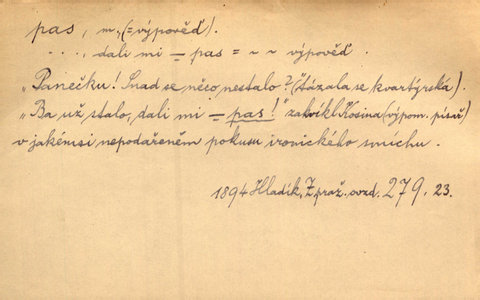 pas, m. (= výpověď).
...., dali mi = pas = ~ ~ výpověď.
„Panečku! Snad se něco nestalo?" (tázala se kvartýrská).
„Ba už stalo, dali mi = pas!" zakvikl Kosina (výpom. písař)
v jakémsi nepodařeném pokusu ironického smíchu.
1894 Hladík, Z praž. ovzd. 279. 23.